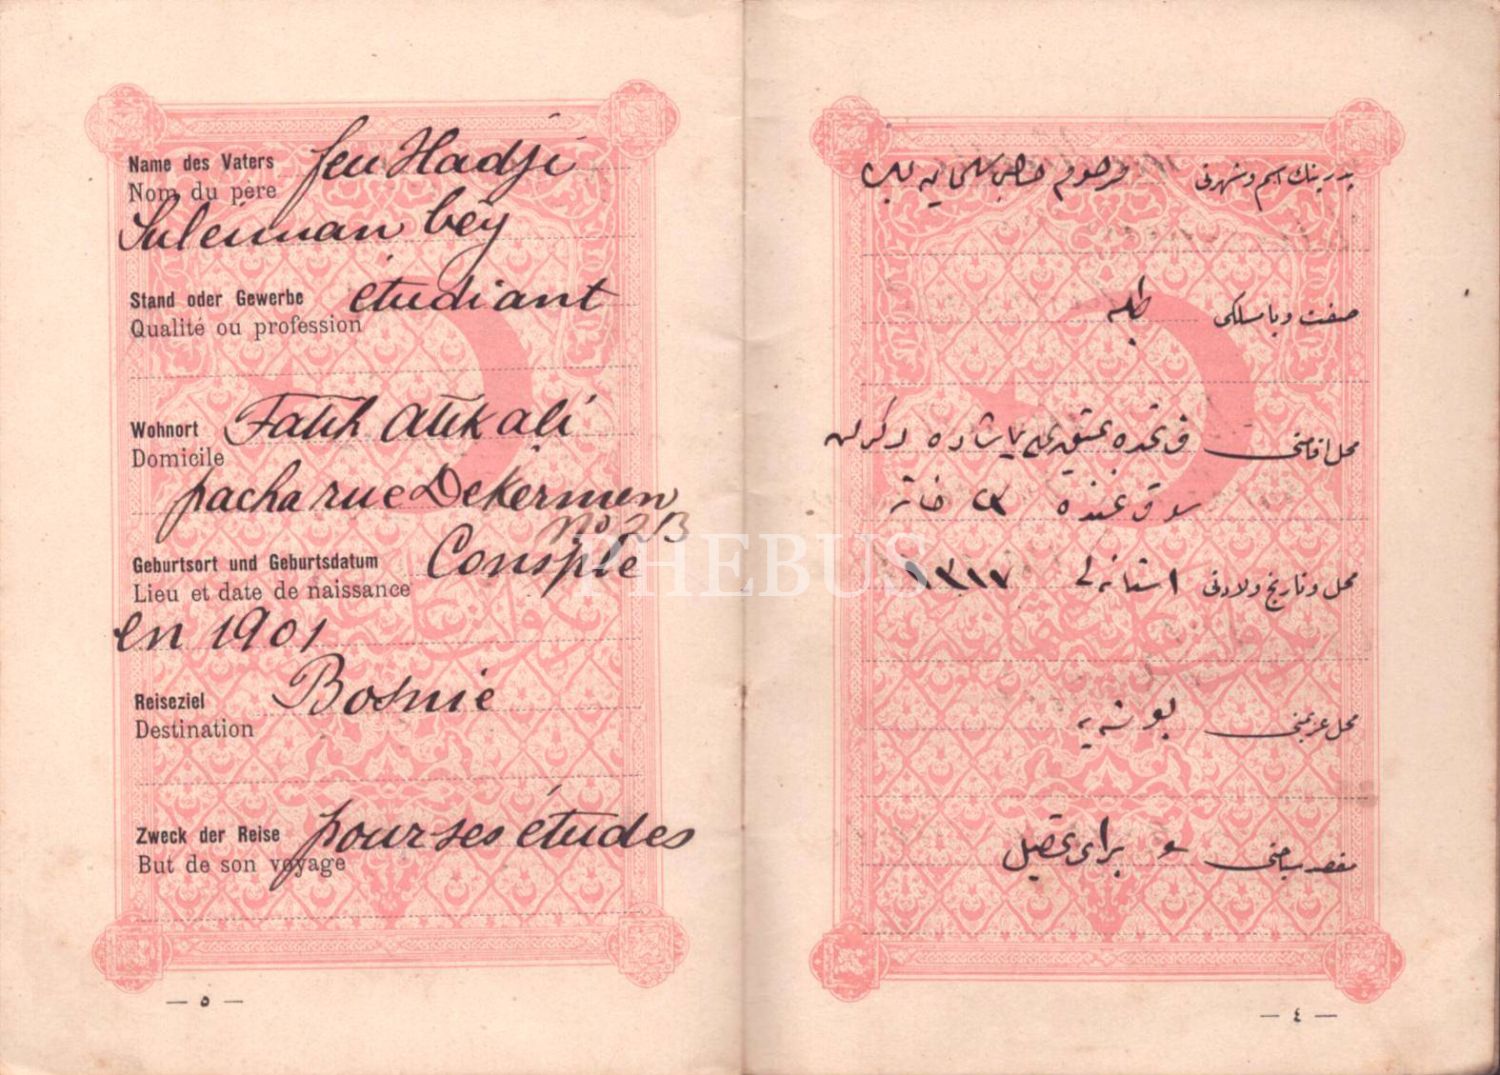 Name des Vaters feu Hadji
Nom du père
Suleiman bey
Stand oder Gewerbe étudiant
Qualité ou profession
Wohnort Fatih Atik ali
Domicile
pacha rue Dekermen
No
Geburtsort und Geburtsdatum Conspple
Lieu et date de naissance
en 1901
Reiseziel Bosnie
Destination
Zweck der Reise pour ses études
But de son voyage
— ٥ —
پدرينك اسم و شهرتی مرحوم حاجی سليمان بك
صفت و يا مسلكی طلبه
محل اقامتی فاتحده عتيق علی پاشاده دكرمن
سوقاغنده خانه
محل و تاريخ ولادتی استانه ١٣١٧
محل عزيمتی بوسنه يه
مقصد سياحتی برای تحصيل
— ٤ —
PHEBUS